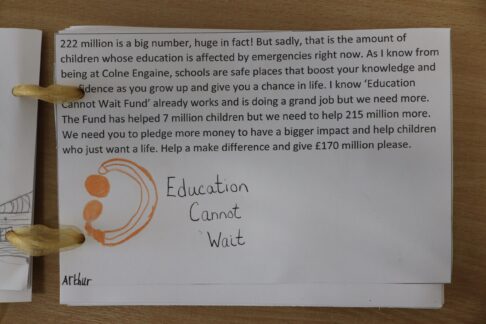 222 million is a big number, huge in fact! But sadly, that is the amount of
children whose education is affected by emergencies right now. As I know from
being at Colne Engaine, schools are safe places that boost your knowledge and
dence as you grow up and give you a chance in life. I know ‘Education
Cannot Wait Fund’ already works and is doing a grand job but we need more.
The Fund has helped 7 million children but we need to help 215 million more.
We need you to pledge more money to have a bigger impact and help children
who just want a life. Help a make difference and give £170 million please.
Education
Cannot
Wait
Arthur